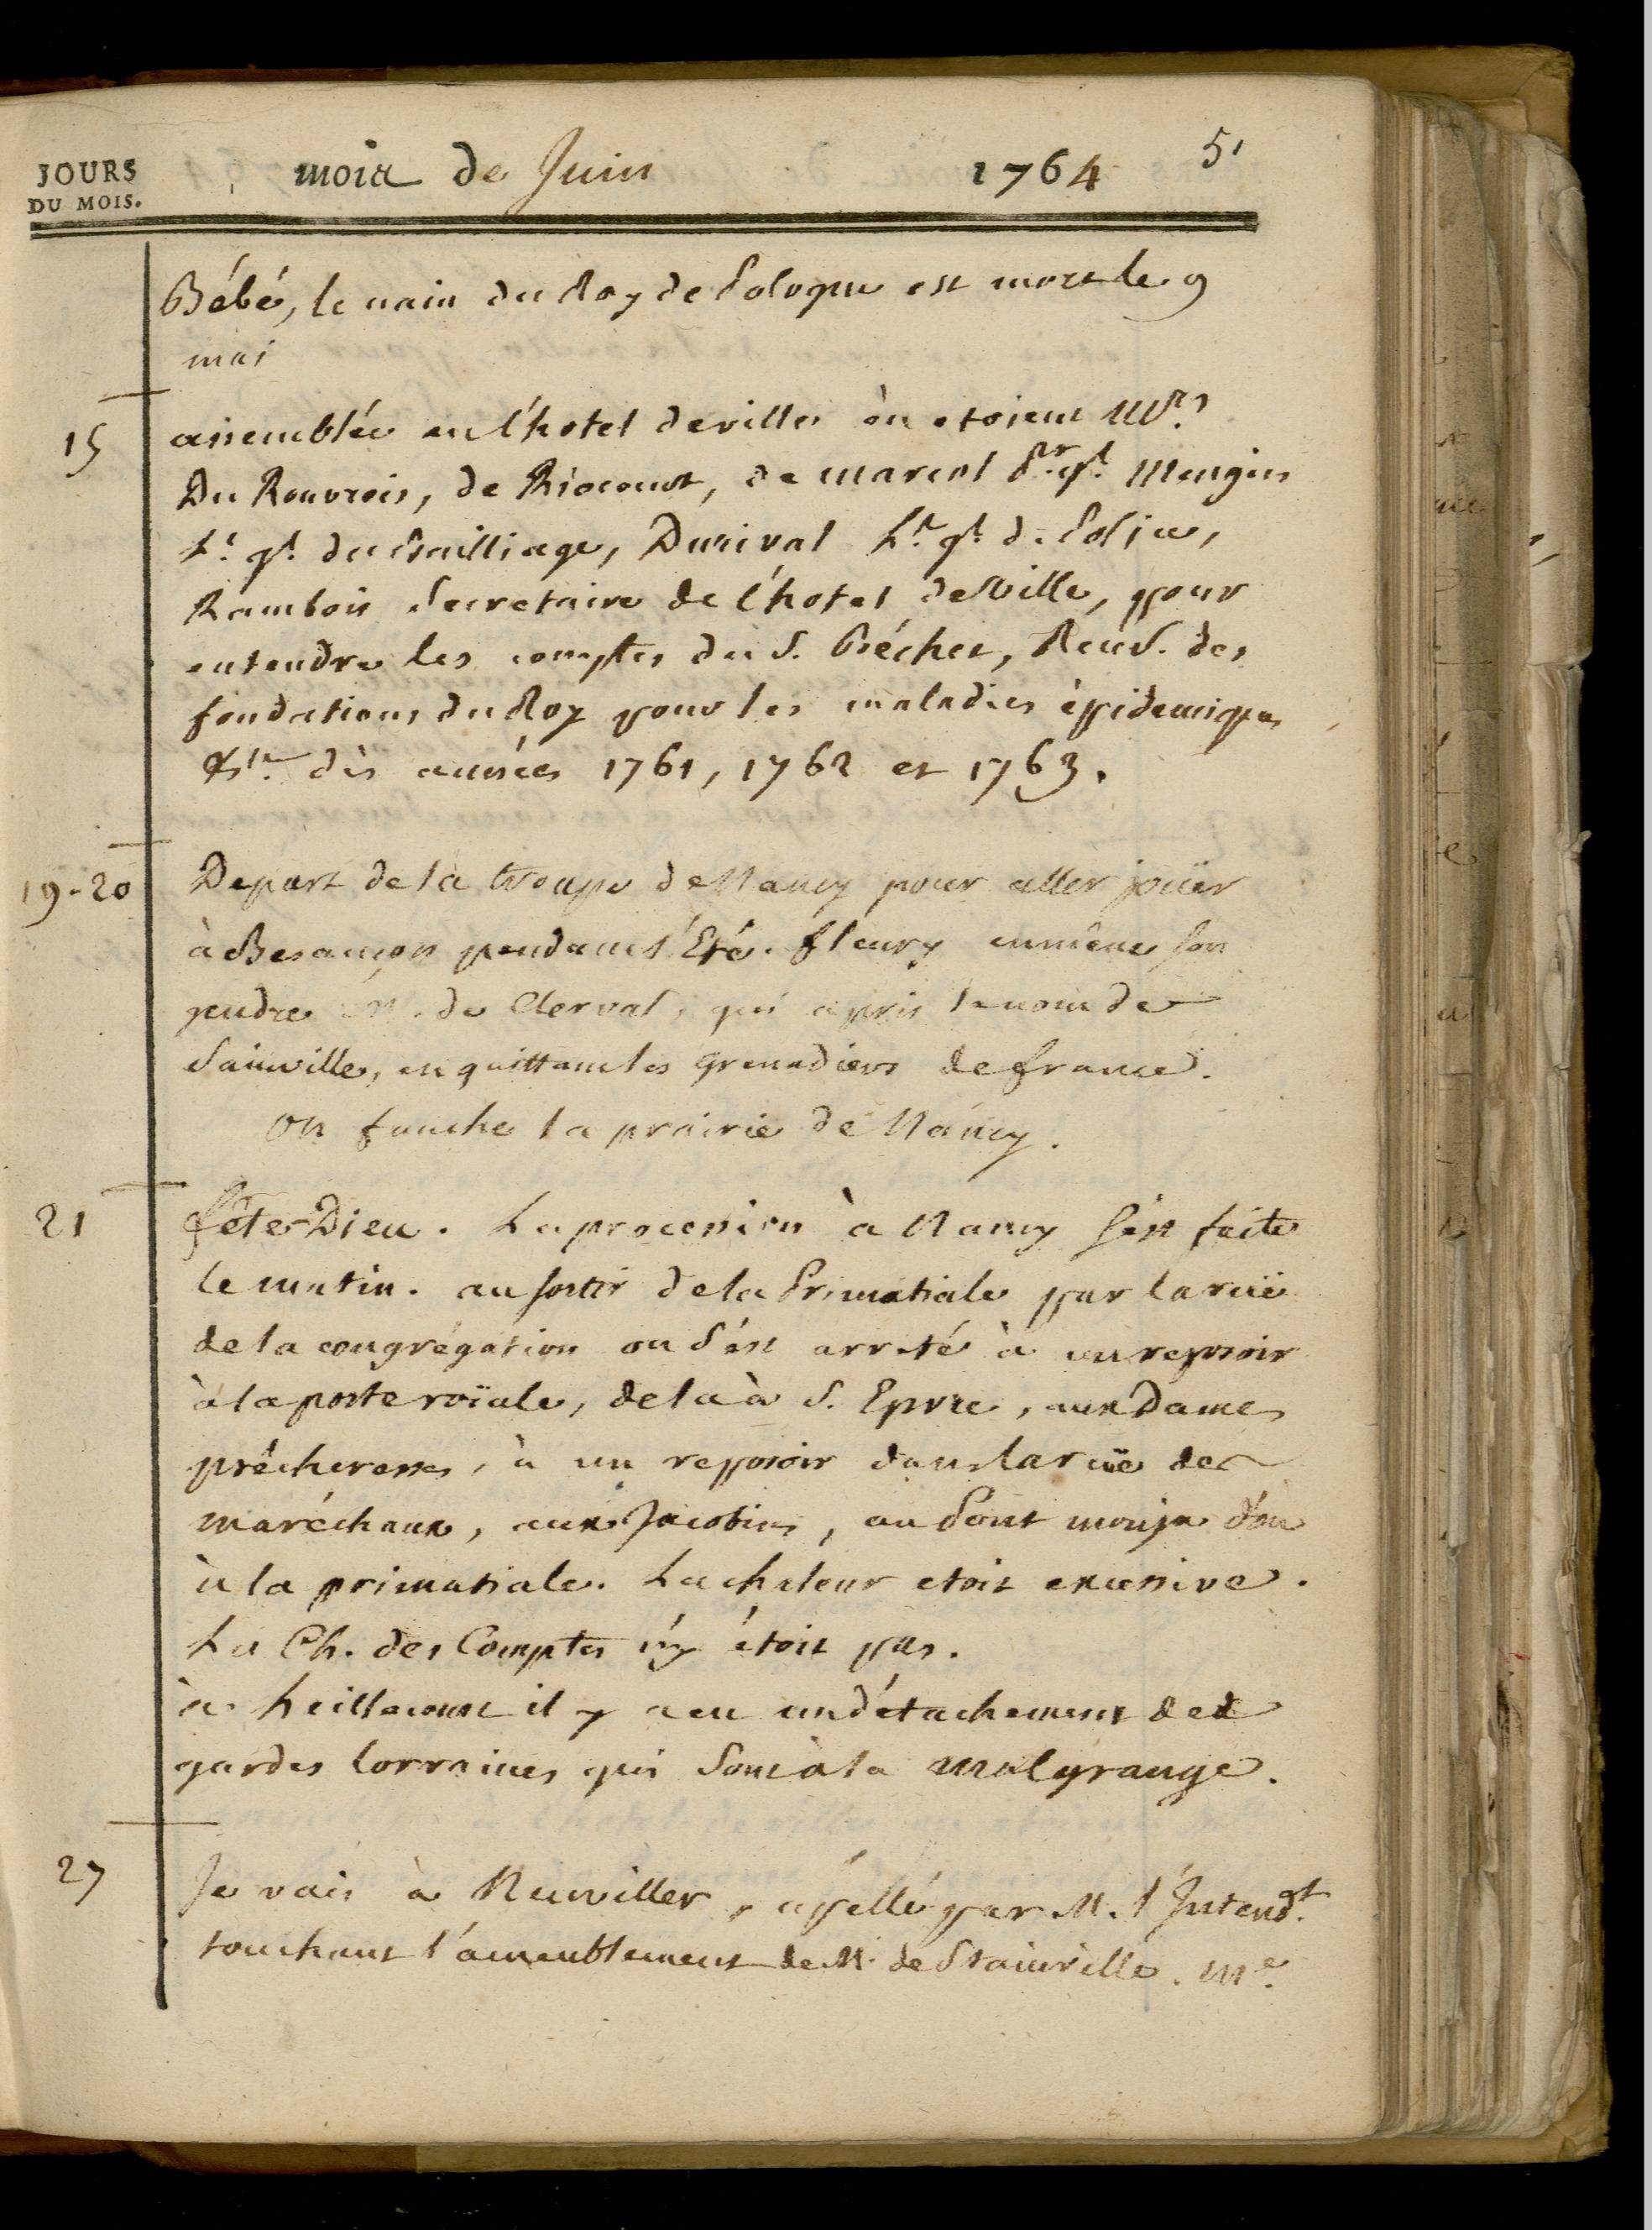 JOURS
DU MOIS.
mois de Juin 1764 51
Bébé, le nain du Roy de Pologne est mort le 9
mai
15 assemblée en l'hotel de ville où etoient Mrs
Du Rouvrois, de Riocourt, de marcol Pr. gl. Mengin
Lt. gl. du Bailliage, Durival Lt. gl. de Police,
Rambois Secretaire de l'hotel de Ville, pour
entendre les comptes du S. Bréchet, Recev. des
fondations du Roy pour les maladies épidemiques
&c. dès années 1761, 1762 et 1763.
19-20 Depart de la troupe de Nancy pour aller joüer
à Besançon pendant l'Eté. fleury emmène son
gendre M. de Clerval, qui a pris le nom de
Sainville, en quittant les grenadiers de france.
On fauche la prairie de Nancy.
21 fête-Dieu. La procession à Nancy s'est faite
le matin. au sortir de la Primatiale par la ruë
de la congrégation on s'est arreté à un reposoir
à la porte roïale, de la à S. Epvre, aux Dames
prêcheresses, à un reposoir dans la ruë des
maréchaux, aux Jacobins, au Pont mouja d'ou
à la primatiale. La chaleur etoit excessive.
La Ch. des Comptes n'y étoit pas.
à heillecourt il y a eu un détachement des
gardes lorraines qui sont à la malgrange.
27 Je vais à Neuviller, apellé par M. l'Intendt.
touchant l'ameublement de M. de Stainville. Me.